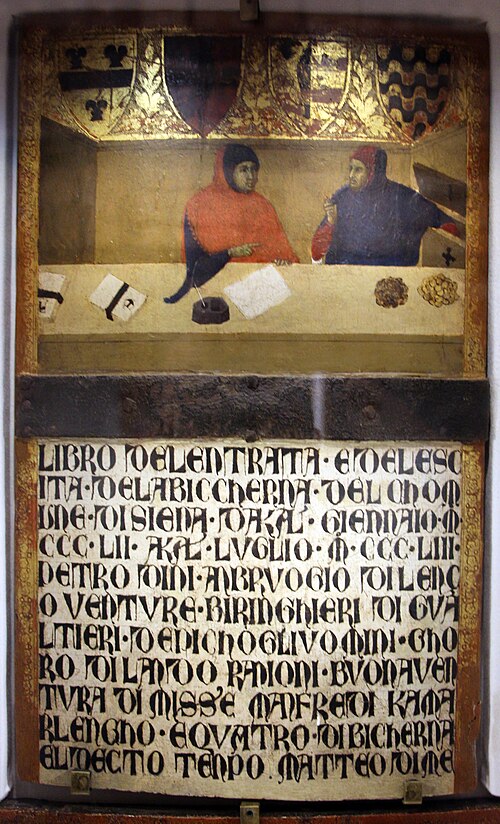 LIBRO DELENTRATA · EDELESC
ITA · DELABICCHERNA · DEL CHOM
UNE · DI SIENA · DAKAL · GIENNAIO · M
CCC · LII · AKAL · LUGLIO · M · CCC · LIII ·
PETRO DINI · ANBRUOGIO DI LENÇ
O VENTURE · BIRINGHIERI DI GUA
LTIERI · DEDICHOGLIUOMINI · GHO
RO DI LANDO · BUONAVEN
TURA DI MISSE MANFREDI KAMA
RLENGHO · EQUATRO · DIBICHERNA
ELDECTO TENPO · MATTEO DI ME